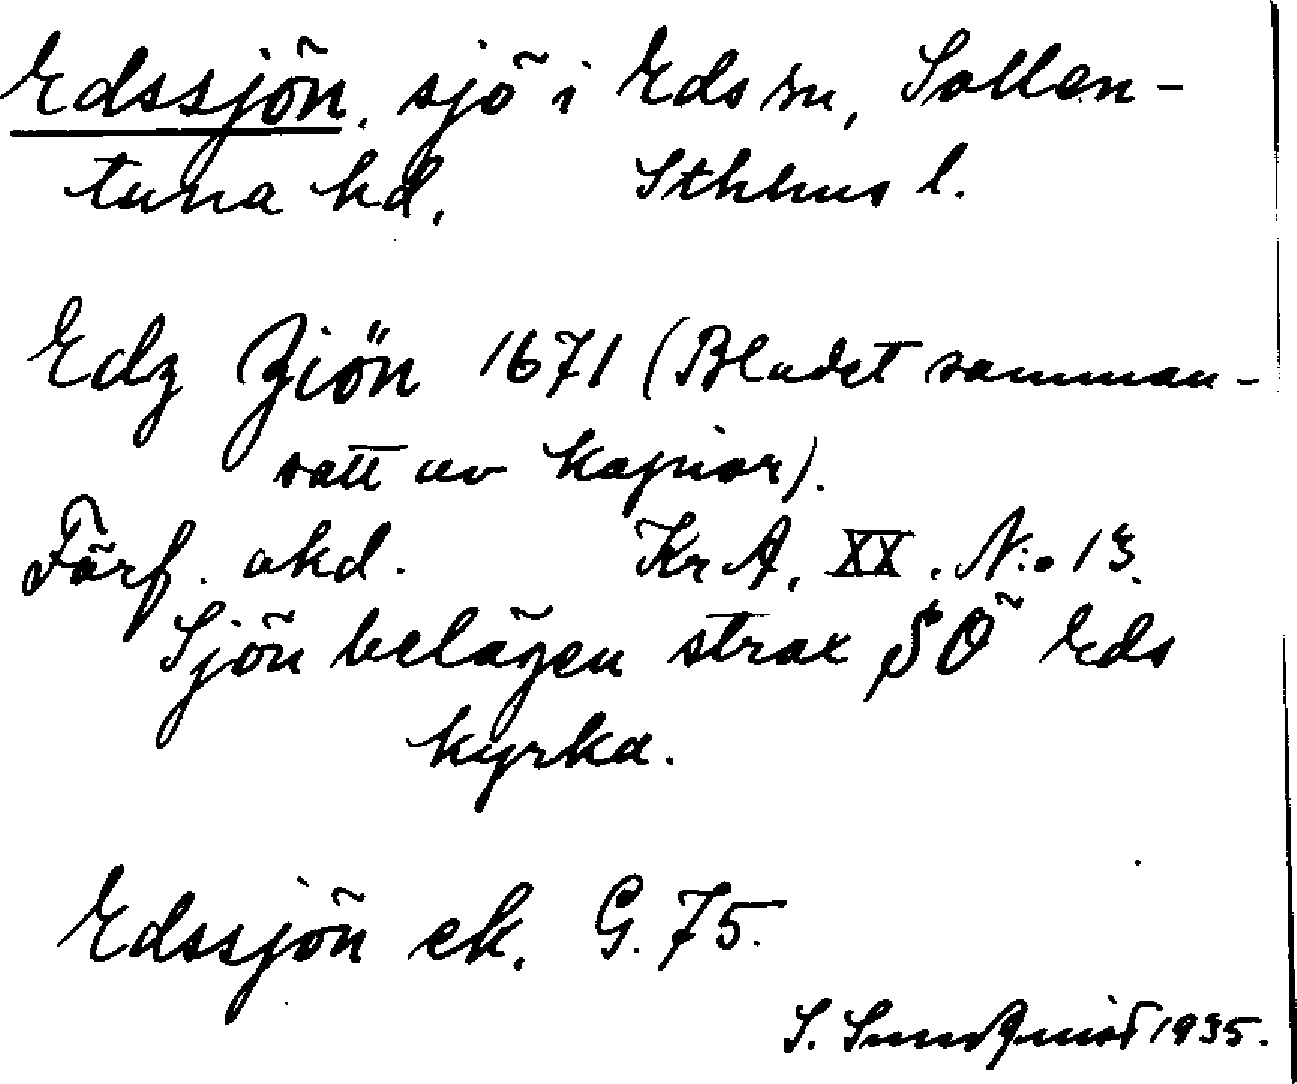 Edssjön, sjö i Eds sn, Sollen-
tuna hd. Sthlms l.
Edz Zjön 1671 (Bladet samman-
satt av kopior).
Förf. okd. Kr A, XX. N:o 13.
Sjön belägen strax SÖ Eds
kyrka.
Edssjön ek. G. 75.
S. Sundqvist 1935.